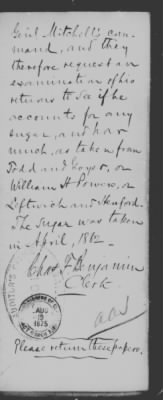 Genl Mitchell's com-
mand, and they
therefore request an
examination of his
returns to see if he
accounts for any
sugar, and how
much, as taken from
Todd and                 , or
William H Powers, or
Liftwich and
The Sugar was taken
in April, 1862
Chas. F. Benjamin
Clerk.
AUG
19
1875
Please return these papers.